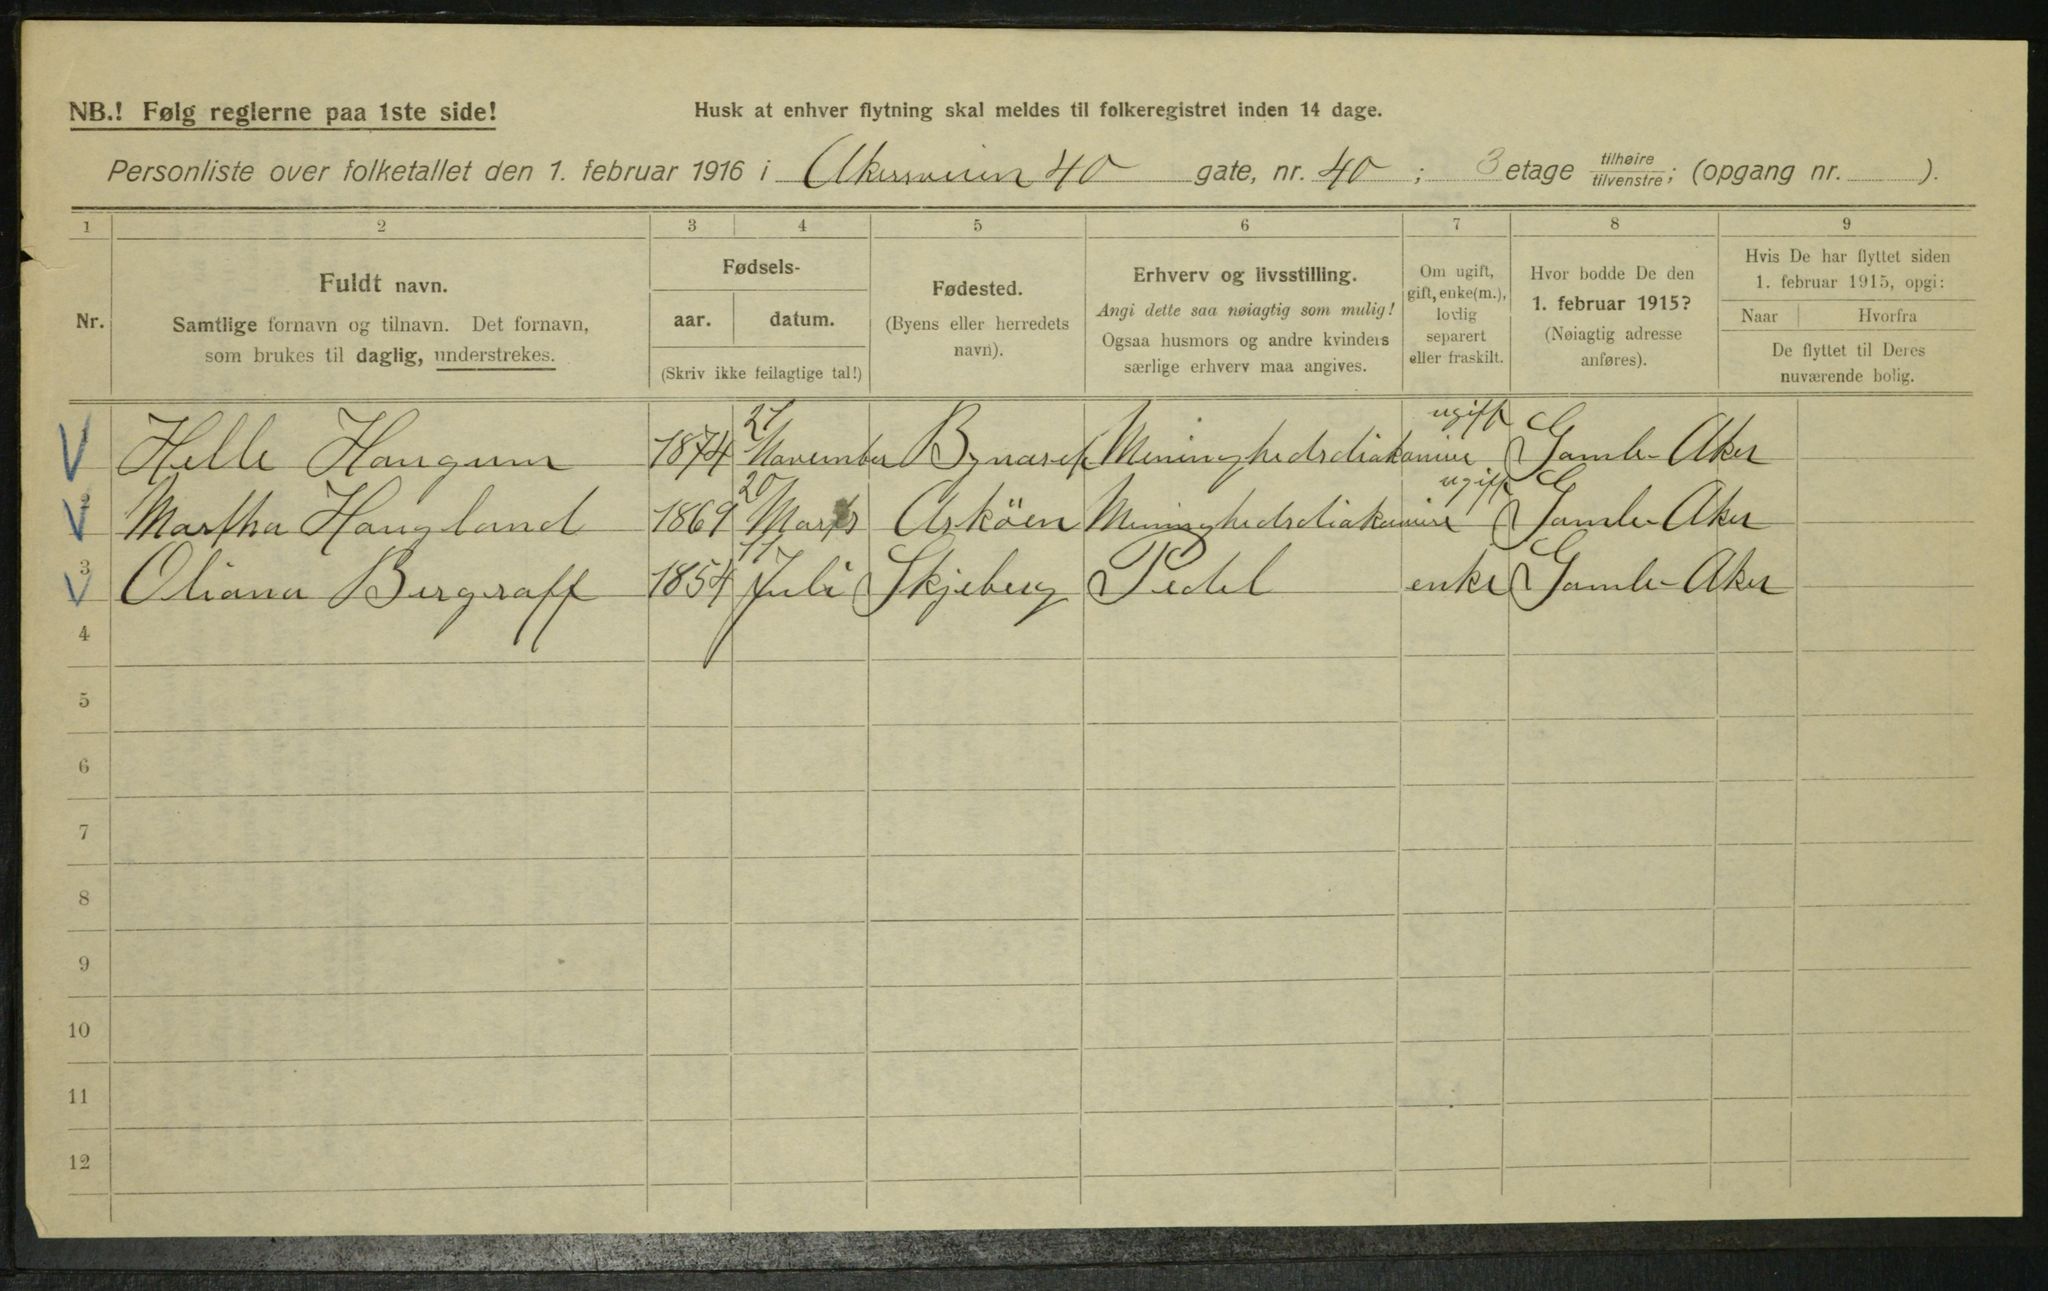 NB.! Følg reglerne paa 1ste side!
Husk at enhver flytning skal meldes til folkeregistret inden 14 dage.
Personliste over folketallet den 1. februar 1916 i Akersveien 40 gate, nr. 40 ; 3 etage tilhøire tilvenstre; (opgang nr. ).
1 2 3 4 5 6 7 8 9
Nr.
Fuldt navn.
Samtlige fornavn og tilnavn. Det fornavn,
som brukes til daglig, understrekes.
Fødsels-
aar. datum.
(Skriv ikke feilagtige tal!)
Fødested.
(Byens eller herredets
navn).
Erhverv og livsstilling.
Angi dette saa nøiagtig som mulig!
Ogsaa husmors og andre kvinders
særlige erhverv maa angives.
Om ugift,
gift, enke(m.),
lovlig
separert
eller fraskilt.
Hvor bodde De den
1. februar 1915?
(Nøiagtig adresse
anføres).
Hvis De har flyttet siden
1. februar 1915, opgi:
Naar Hvorfra
De flyttet til Deres
nuværende bolig.
Helle Haugum 1874 27 November Menighedsdiakonisse ugift Gamle-Aker
2 Martha Haugland 1869 20 Marts Asköen Menighedsdiakonisse ugift Gamle-Aker
3 Oliana Bergraff 1854 11 Juli Skjeberg Pedel enke Gamle-Aker
4
5
6
7
8
9
10
11
12